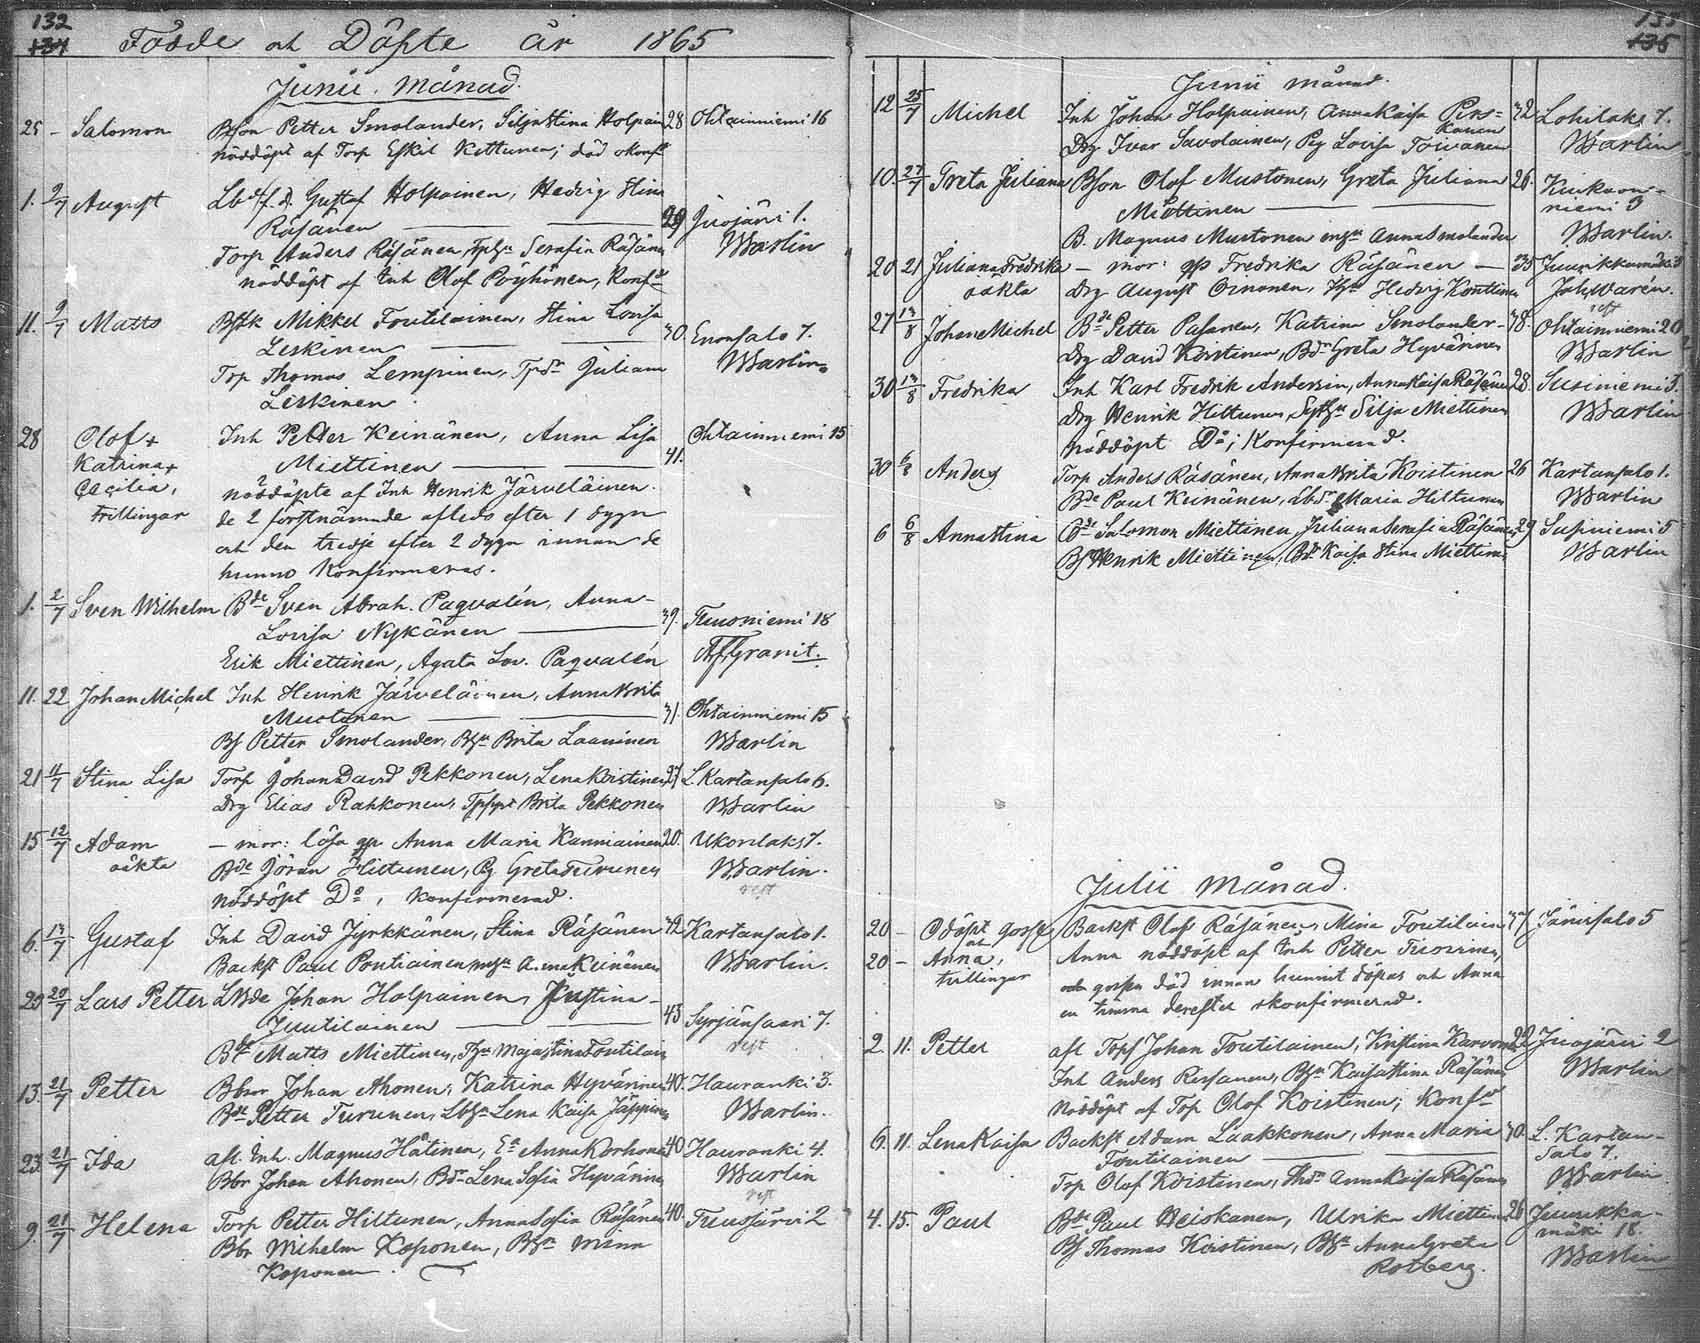 132
134
Födde och Döpte år 1865
Junii Månad.
25 - Salomon Bson Petter Smolander, Silja Stina Holpain 28 Ohtainniemi 16
nöddöpt af Torp Eskil Kettunen; död okonf.
1. 2/7 August Lbd f.d. Gustaf Holpainen, Hedvig Stina
Räsänen 29 Juojärvi 1.
Torp Anders Räsänen, Serafia Räsänen Warlin
nöddöpt af Inh Olof Pöyhönen, Konf.
11. 9/7 Matts Mikkel Toutilainen, Stina Lovisa
Leskinen 30. Enonsalo 7.
Torp Thomas Lempinen, Juliana Warlin
Leskinen
28 Olof + Inh Petter Keinänen, Anna Lisa Ohtainniemi 15
Katrina + Miettinen 41.
Cecilia, nöddöpte af Inh Henrik Järveläinen.
Trillingar de 2 förstnämnde afledo efter 1 dygn
och den tredje efter 2 dygn innan de
hunno Konfirmeras.
1. 2/7 Sven Wilhelm Bde Sven Abrah. Paqvalén, Anna
Lovisa Nykänen 39. Tuusniemi 18
Erik Miettinen, Agata Lov. Paqvalén Granit.
11. 22 Johan Michel Inh Henrik Järveläinen, Anna Brita
Mustonen 31. Ohtainniemi 15
Bs Petter Smolander, Brita Laaninen Warlin
21 11/7 Stina Lisa Torp Johan David Pekkonen, Lena Koistinen L. Kartansalo 6.
Drg Elias Rahkonen, Brita Pekkonen Warlin
15 12/7 Adam - mor: lösa qp Anna Maria Kanniainen 20. Ukonlaks 7.
oäkta Bde Jöran Hiltunen, Pg Greta Turunen Warlin.
nöddöpt Do, Konfirmerad.
6. 13/7 Gustaf Inh David Jyrkkänen, Stina Räsänen 42 Kartansalo 1.
Backst Paul Pontiainen Anna Keinänen Warlin.
20 20/7 Lars Petter LBde Johan Holpainen, Justina
Juutilainen 43 Syrjänsaari 7.
Matts Miettinen, Maja Stina Toutilain
13. 21/7 Petter Johan Ahonen, Katrina Hyvärinen 40. Hauranki 3.
Bde Petter Turunen, Lena Kaisa Jäppinen Warlin.
23. 21/7 Ida afl. Inh. Magnus Hätinen, Anna Korhonen 40 Hauranki 4.
Johan Ahonen, Lena Sofia Hyvärinen Warlin
9. 21/7 Helena Torp Petter Hiltunen, Anna Sofia Räsänen 40. Tuusjärvi 2
Wilhelm Koponen, Minna
Koponen.
135
Junii månad.
12 25/7 Michel Inh Johan Holpainen, Anna Kaisa Pirs= 32 Lohilaks 7.
kanen
Drg Ivar Savolainen, Pg Lovisa Toivanen Warlin
10. 27/7 Greta Juliana Bson Olof Mustonen, Greta Juliana 26. Kiukoon-
Miettinen niemi 3
B. Magnus Mustonen Anna Smolander Warlin.
20 21 Juliana Fredrika - mor: qp Fredrika Räsänen - 35 Juurikkamäki 3
oäkta Drg August Ornonen, Hedvig Konttinen Joh. Warén.
27 13/8 Johan Michel Bde Petter Pasanen, Katrina Smolander 38. Ohtainniemi 20
Drg David Koistinen, Greta Hyvärinen Warlin
30 13/8 Fredrika Inh Karl Fredrik Andersin, Anna Kaisa Räsänen 28. Susiniemi 3.
Drg Henrik Hiltunen, Silja Miettinen Warlin
nöddöpt Do; Konfirmerad.
30 6/8 Anders Torp Anders Räsänen, Anna Brita Koistinen 26 Kartansalo 1.
Bde Paul Keinänen, Maria Hiltunen Warlin
6 6/8 Anna Stina Salomon Miettinen, Juliana Serafia Räsänen 29 Susiniemi 5
Bs Henrik Miettinen, Kaisa Stina Miettinen Warlin
Julii Månad.
20 - Odöpt gosse Backst Olof Räsänen, Mina Toutilain Jänissalo 5
och
20 - Anna, Anna nöddöpt af Inh Petter
tvillingar gossen död innan hunnit döpas och Anna
en timma derefter okonfirmerad.
2. 11. Petter afl Johan Toutilainen, Kristina Karvonen Juojärvi 2
Inh Anders Rissanen, Kaisa Stina Räsänen Warlin
Nöddöpt af Torp Olof Koistinen; Konf.
6. 11. Lena Kaisa Backst Adam Laakkonen, Anna Maria 30. L. Kartan-
Toutilainen salo 7.
Torp Olof Koistinen, Anna Kaisa Räsänen Warlin
4. 15. Paul Bde Paul Heiskanen, Ulrika Miettinen 26 Juurikka-
mäki 18.
Bs Thomas Koistinen, Anna Greta Warlin
Rotberg.